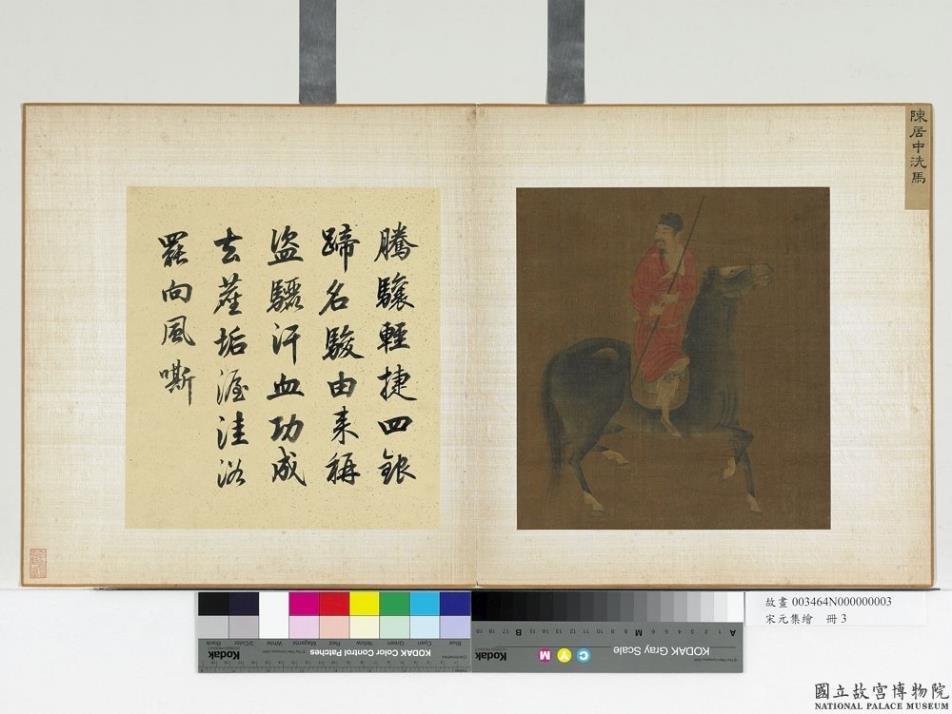 陳居中洗馬
騰驤輕捷四銀
蹄名駿由来稱
盜驪汗血功成
去塵垢渥洼浴
罷向風嘶
故畫 003464N000000003
宋元集繪 冊 3
Kodak
KODAK Color Control Patches
Blue
Cyan
Green
Yellow
Red
Magenta
White
3/Color
Black
Kodak
KODAK Gray Scale
C
Y
M
A
M
B
1 2 3 4 5 6
國立故宮博物院
NATIONAL PALACE MUSEUM